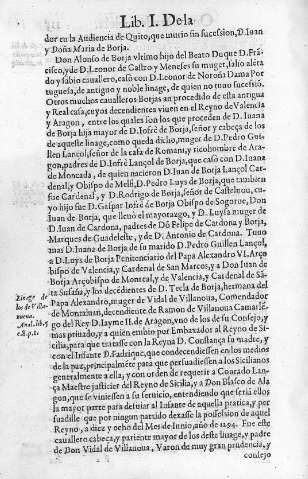 Lib. I. De la
dor en la Audiencia de Quito, que murio sin sucession, D. Iuan
y Doña Maria de Borja.
Don Alonso de Borja vltimo hijo del Beato Duque D. Frã-
cisco, y de D. Leonor de Castro y Meneses su muger, salio alẽtado
y sabio cauallero, casò con D. Leonor de Noroña Dama Por
tuguesa, de antiguo y noble linage, de quien no tuuo sucessiõ.
Otros muchos caualleros Borjas an procedido de esta antigua
y Real casa, cuyos decendientes viuen en el Reyno de Valencia
y Aragon, entre los quales son los que proceden de D. Iuana
de Borja hija mayor de D. Iofrè de Borja, señor y cabeça de los
de aqueste linage, como queda dicho, muger de D. Pedro Gui-
llen Lançol, señor de la casa de Romani, y ricohombre de Ara-
gon, padres de D. Iofrè Lançol de Borja, que casò con D. Iuana
de Moncada, de quien nacieron D. Iuan de Borja Lançol Car-
denal, y Obispo de Melfi, D. Pedro Luys de Borja, que tambien
fue Cardenal, y D. Rodrigo de Borja, señor de Castelnou, cu-
yo hijo fue D. Gaspar Iofrè de Borja Obispo de Sogorue, Don
Iuan de Borja, que lleuò el mayorazgo, y D. Luysa muger de
D. Iuan de Cardona, padres de Dõ Felipe de Cardona y Borja,
Marques de Guadeleste, y de D. Antonio de Cardona. Tuuo
mas D. Iuana de Borja de su marido D. Pedro Guillen Lançol,
a D. Luys de Borja Penitenciario del Papa Alexandro VI. Arço
bispo de Valencia, y Cardenal de San Marcos, y a Don Iuan de
Borja Arçobispo de Monreal, y de Valencia, y Cardenal de Sã-
ta Susana, y los decendientes de D. Tecla de Borja, hermana del
Papa Alexandro, muger de Vidal de Villanoua, Comendador
de Montaluan, decendiente de Ramon Villanoua Camarlé-
go del Rey D. Iayme II. de Aragon, vno de los de su Consejo, y
mas priuado, y a quien embiò por Embaxador al Reyno de Si-
cilia, para que tratasse con la Reyna D. Constança su madre, y
con el Infante D. Fadrique, que condecendiessen en los medios
de la paz, principalmẽte para que persuadiessen a los Sicilianos
generalmente a ella, y con orden de requerir a Conrado Lan-
ça Maestre justicier del Reyno de Sicilia, y a Don Blasco de Ala-
gon, que se viniessen a su seruicio, entendiendo que seria ellos
la mayor parte para desuiar al Infante de aquella empresa, y per
suadille que por ningun partido dexasse la possession de aquel
Reyno, a diez y ocho del Mes de Iunio, año de 1294. Fue este
cauallero cabeça, y pariente mayor de los deste linage, y padre
de Don Vidal de Villanoua, Varon de muy gran prudencia, y
consejo
Linage de
los de Villa-
nueua.